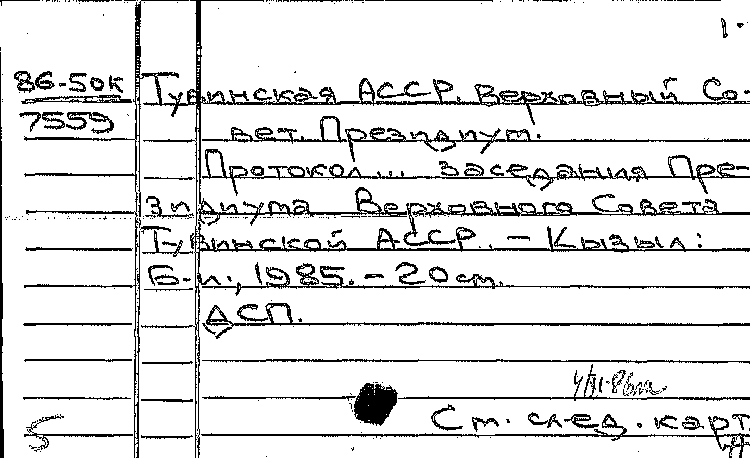 1.
86-50к Тувинская АССР. Верховный Со-
7559 вет. Президиум.
Протокол... заседания Пре-
зидиума Верховного Совета
Тувинской АССР. - Кызыл:
Б.и., 1985. - 20 см.
ДСП.
См. след. карт.
5